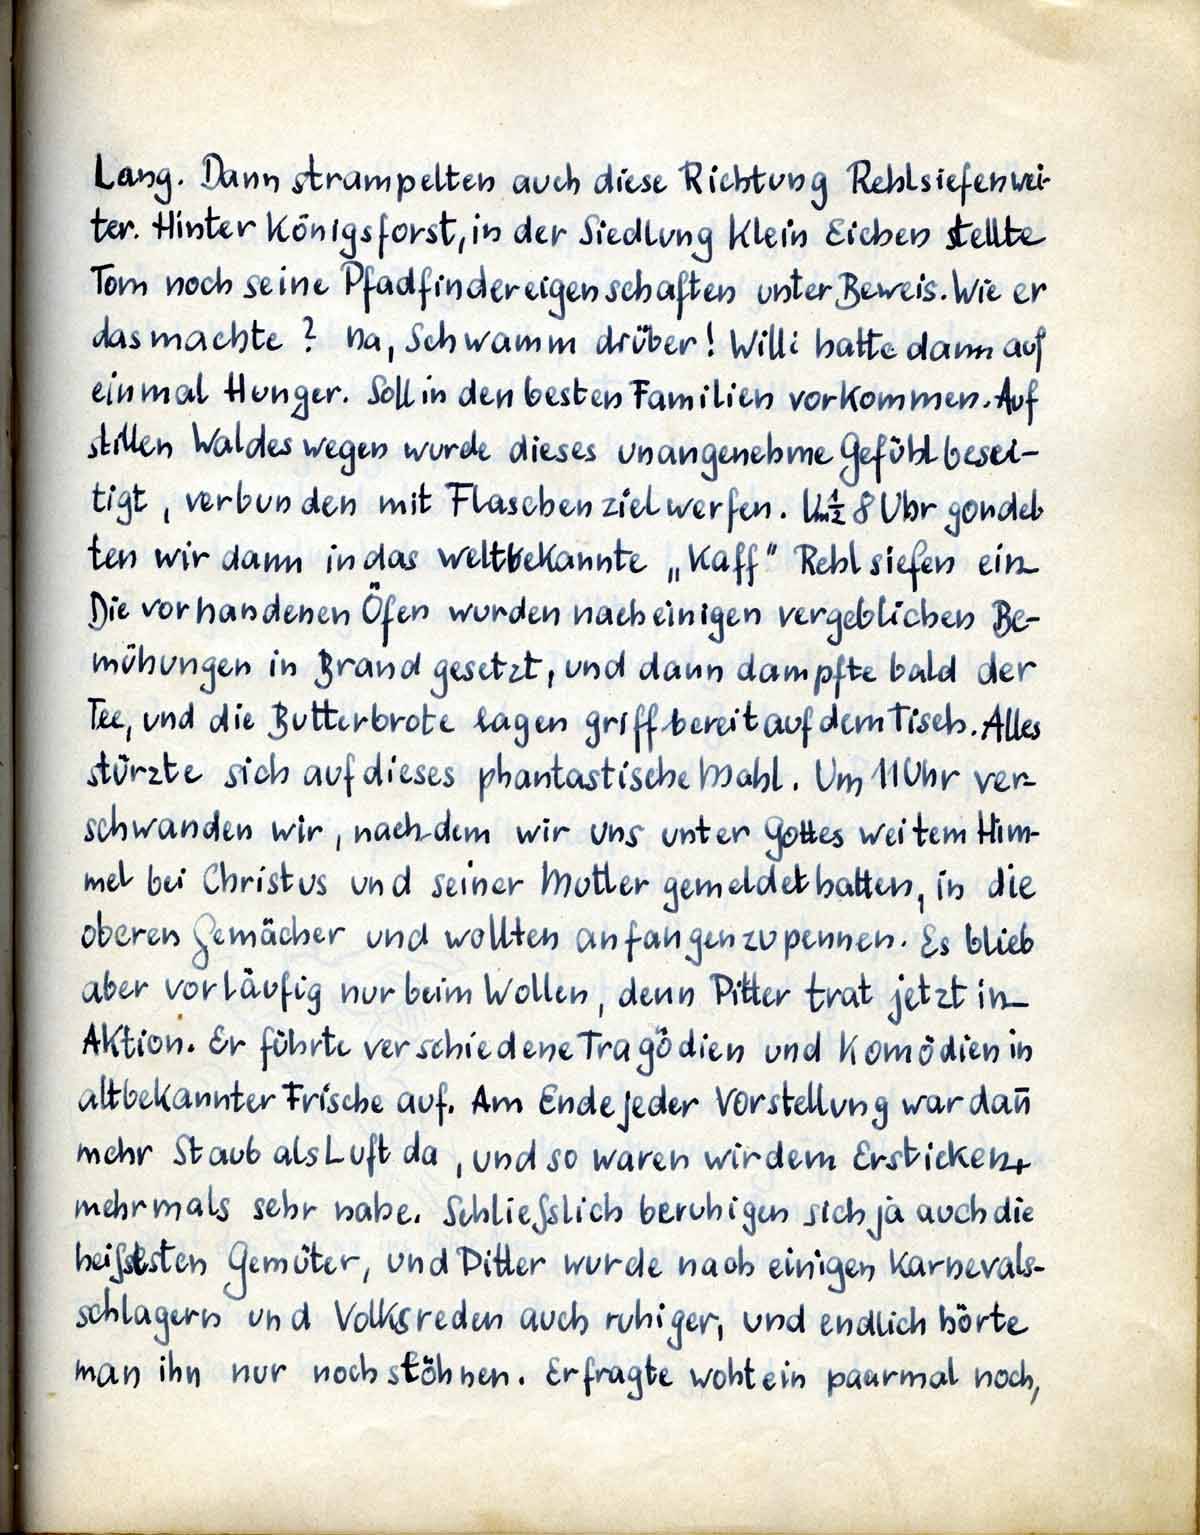 Lang. Dann strampelten auch diese Richtung Rehlsiefen wei-
ter. Hinter Königsforst, in der Siedlung Klein Eichen stellte
Tom noch seine Pfadfindereigenschaften unter Beweis. Wie er
das machte? Na, Schwamm drüber! Willi hatte dann auf
einmal Hunger. Soll in den besten Familien vorkommen. Auf
stillen Waldeswegen wurde dieses unangenehme Gefühl besei-
tigt, verbunden mit Flaschenzielwerfen. Um ½ 8 Uhr gondel-
ten wir dann in das weltbekannte „Kaff" Rehlsiefen ein
Die vorhandenen Öfen wurden nach einigen vergeblichen Be-
mühungen in Brand gesetzt, und dann dampfte bald der
Tee, und die Butterbrote lagen griffbereit auf dem Tisch. Alles
stürzte sich auf dieses phantastische Mahl. Um 11 Uhr ver-
schwanden wir, nachdem wir uns unter Gottes weitem Him-
mel bei Christus und seiner Mutter gemeldet hatten, in die
oberen Gemächer und wollten anfangen zu pennen. Es blieb
aber vorläufig nur beim Wollen, denn Pitter trat jetzt in
Aktion. Er führte verschiedene Tragödien und Komödien in
altbekannter Frische auf. Am Ende jeder Vorstellung war dan̄
mehr Staub als Luft da, und so waren wir dem Ersticken
mehrmals sehr nahe. Schliesslich beruhigen sich ja auch die
heissesten Gemüter, und Pitter wurde nach einigen Karnevals-
schlagern und Volksreden auch ruhiger, und endlich hörte
man ihn nur noch stöhnen. Er fragte wohl ein paarmal noch,